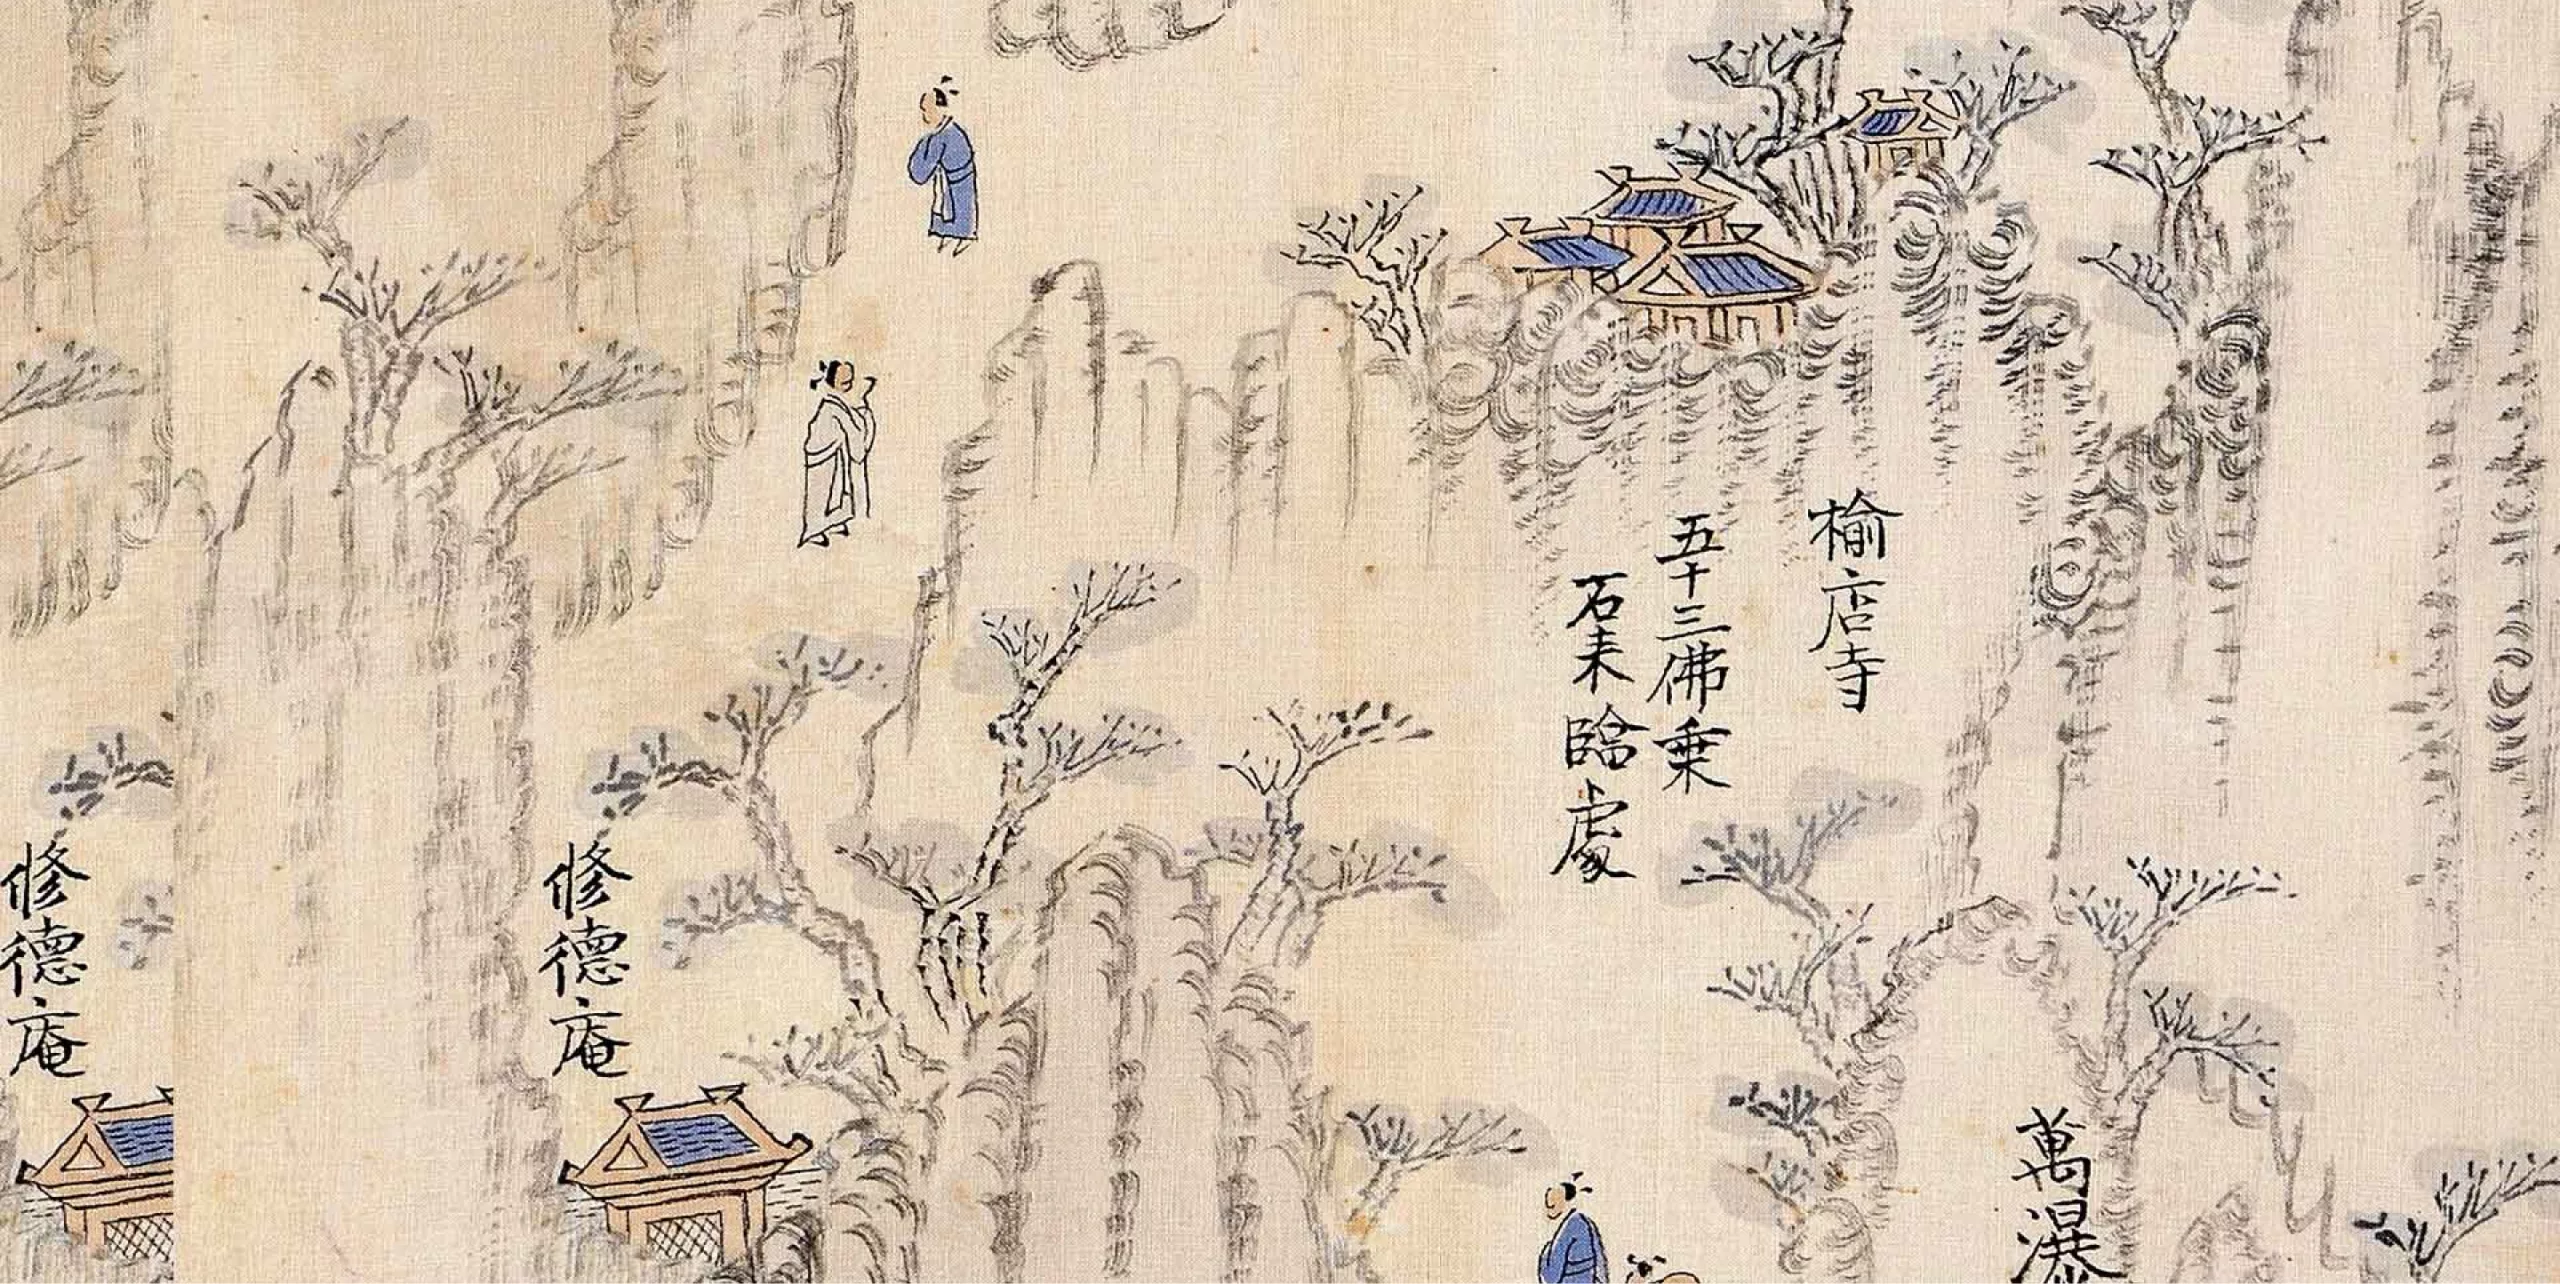 榆店寺
五十三佛乗
石来臨處
萬瀑
修德庵
修德庵